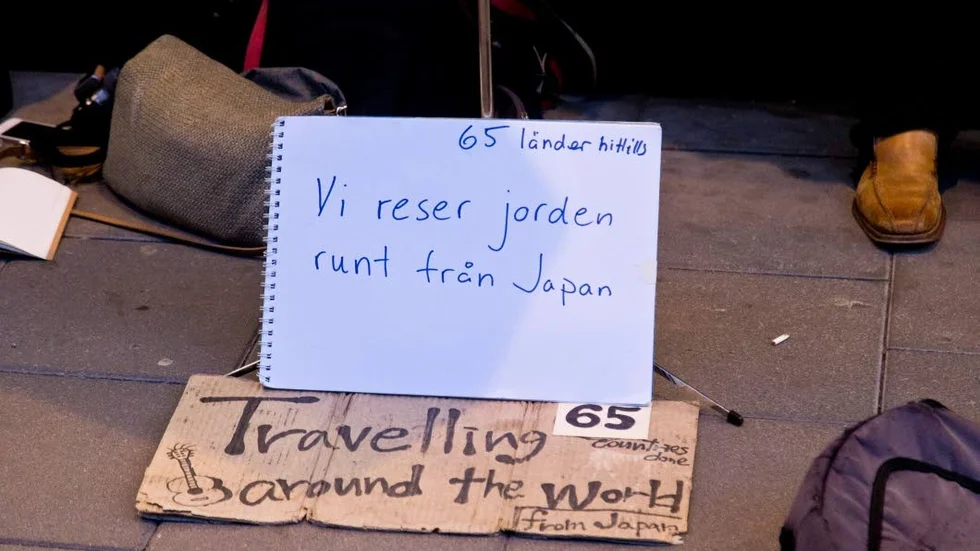 65 länder hittills
Vi reser jorden
runt från Japan
Travelling
65
countries
done
around the World
from Japan